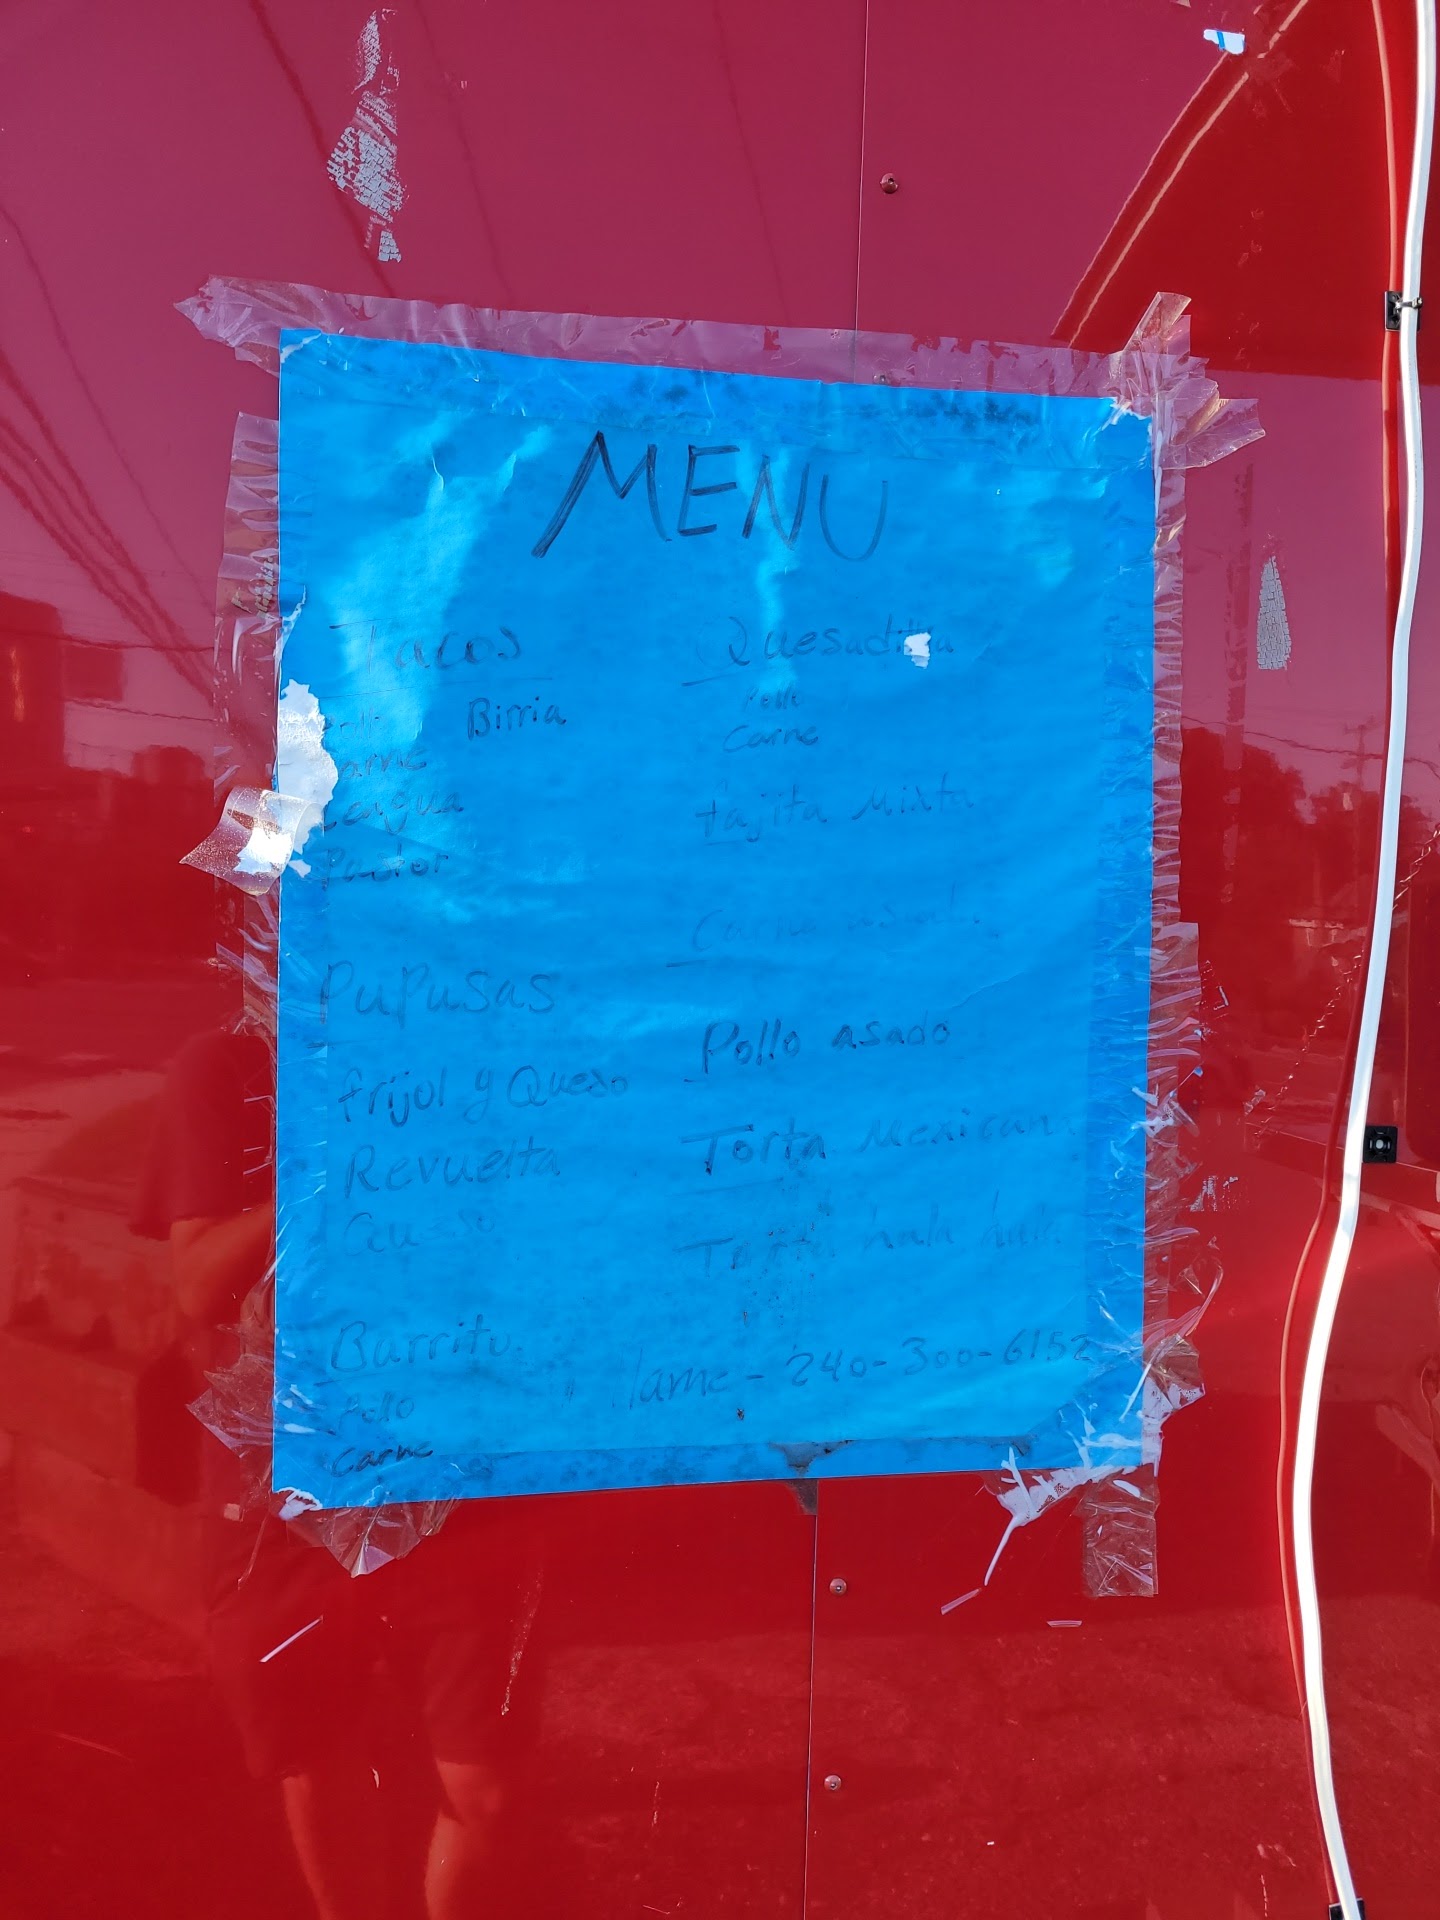 MENU
Tacos
Birria
Lengua
Pastor
Pupusas
frijol y Queso
Revuelta
Queso
Burrito
Pollo
Carne
Quesadilla
Pollo
Carne
fajita Mixta
Carne asada
Pollo asado
Torta Mexicana
Torta hula hula
llame - 240-300-6152